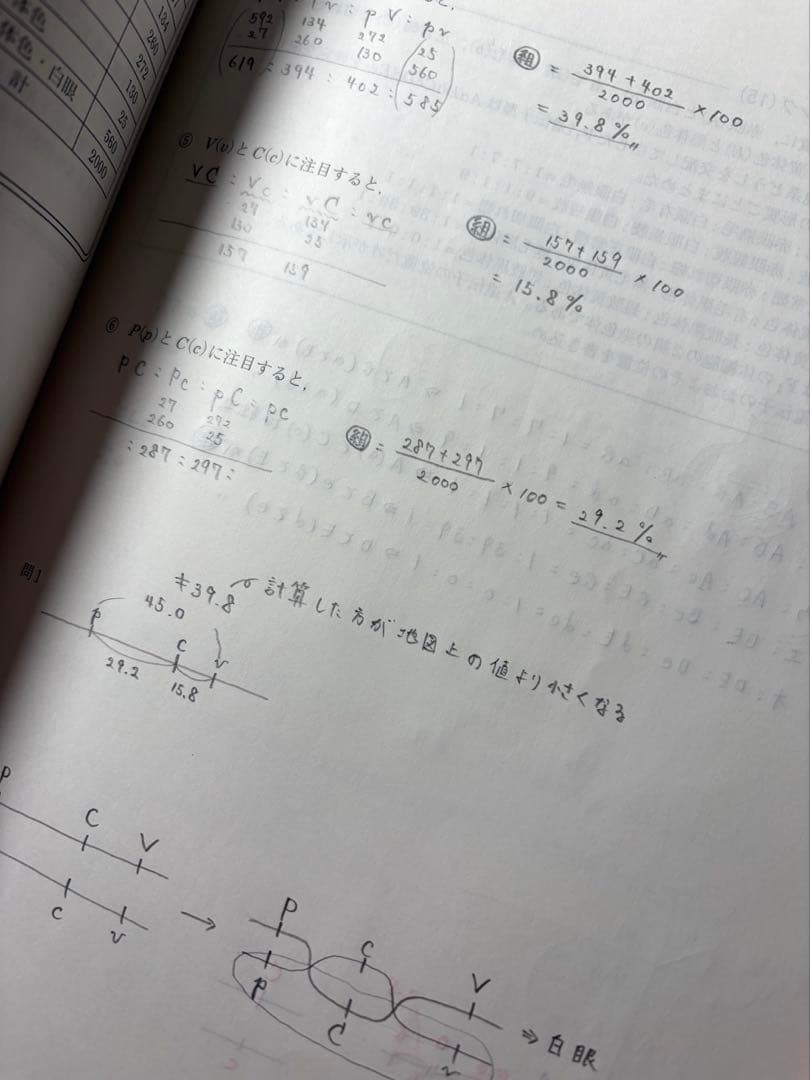 体色
体色・白眼
計
134
260
272
130
25
560
2000
: p V : pv
592 134 272 25
27 260 130 560
619 : 394 : 402 : 585
組 = 394 + 402 / 2000 × 100
= 39.8 %
⑤ V(v)とC(c)に注目すると,
VC : Vc : vC : vc
27 134
130 25
157 159
組 = 157 + 159 / 2000 × 100
= 15.8 %
⑥ P(p)とC(c)に注目すると,
PC : Pc : pC : pc
27 272
260 25
: 287 : 297 :
組 = 287 + 297 / 2000 × 100 = 29.2 %
問1
≠ 39.8 計算した方が地図上の値より小さくなる
45.0
P C v
29.2 15.8
P C V
c v
→
P C V
p C v
⇒ 白眼